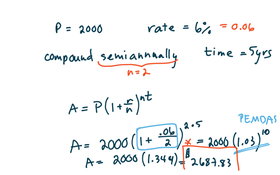 P = 2000 rate = 6% = 0.06
compound semiannually time = 5yrs
n=2
A = P(1+r/n)^nt
PEMDAS
A = 2000(1 + .06/2)^2*5 = 2000(1.03)^10
A = 2000(1.344) = $2687.83